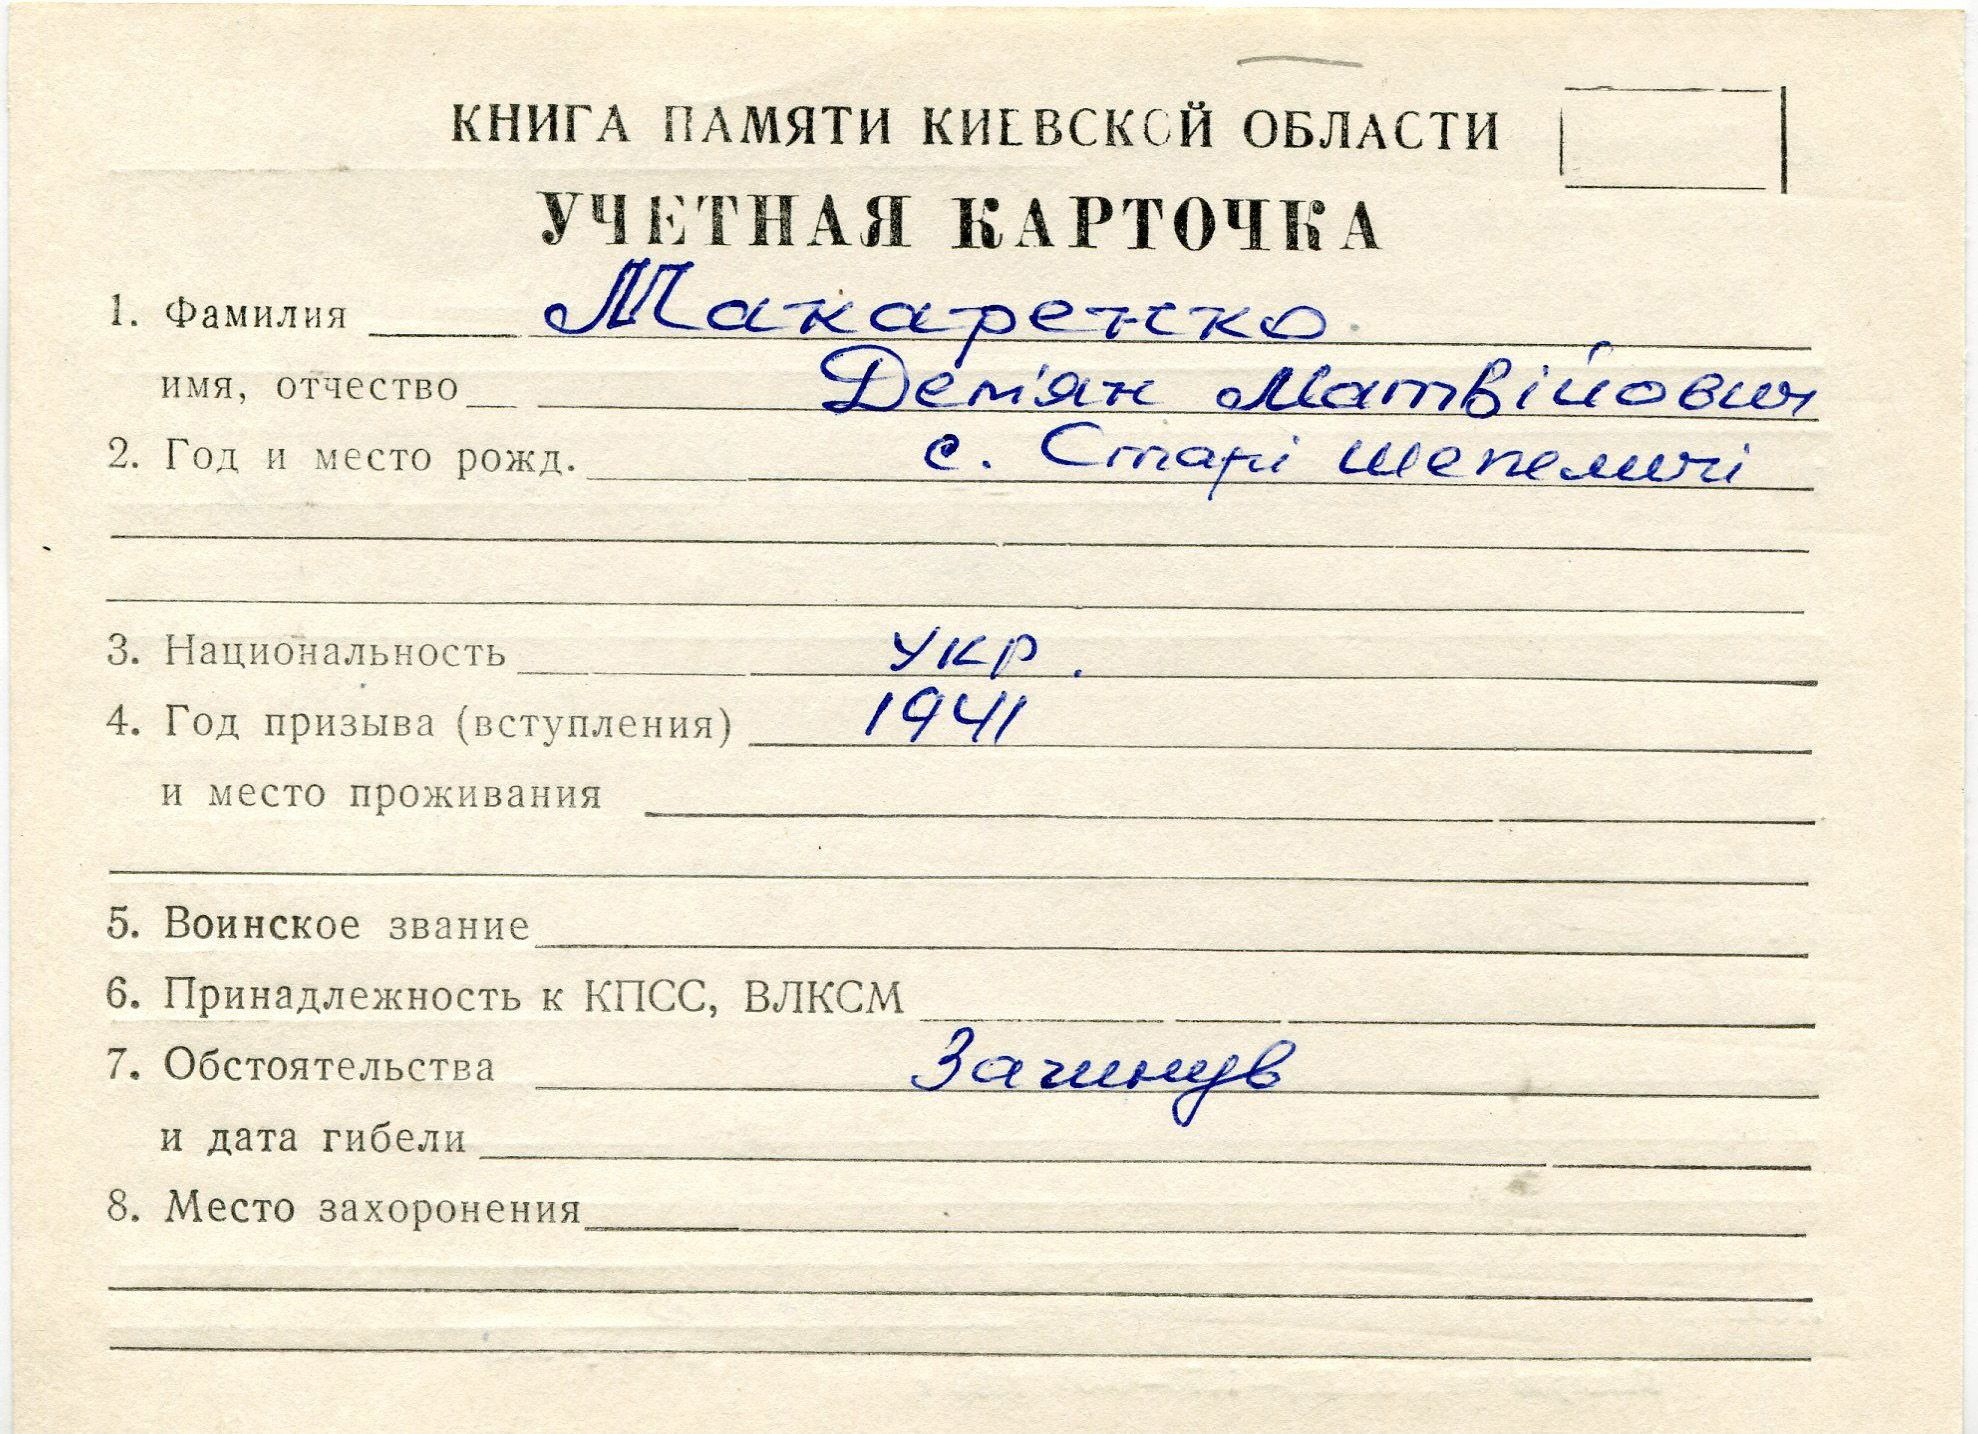 КНИГА ПАМЯТИ КИЕВСКОЙ ОБЛАСТИ
УЧЕТНАЯ КАРТОЧКА
1. Фамилия Макаренко
имя, отчество Дем'ян Матвійович
2. Год и место рожд. с. Старі Шепеличі
3. Национальность укр.
4. Год призыва (вступления) 1941
и место проживания
5. Воинское звание
6. Принадлежность к КПСС, ВЛКСМ
7. Обстоятельства Загинув
и дата гибели
8. Место захоронения